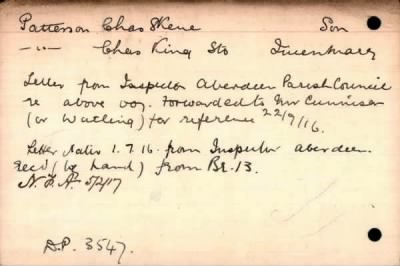 Patterson Chas Skene Son
-"- Chas King Sto Queen Mary
Letter from Inspector Aberdeen Parish Council
re above boy. Forwarded to Mr Cunnison
(or Watling) for reference 22/9/16.
Letter dated 1.7.16. from Inspector aberdeen.
Rec'd (by hand) from Br. 13.
N.F.A. 5/2/17
D.P. 3547.